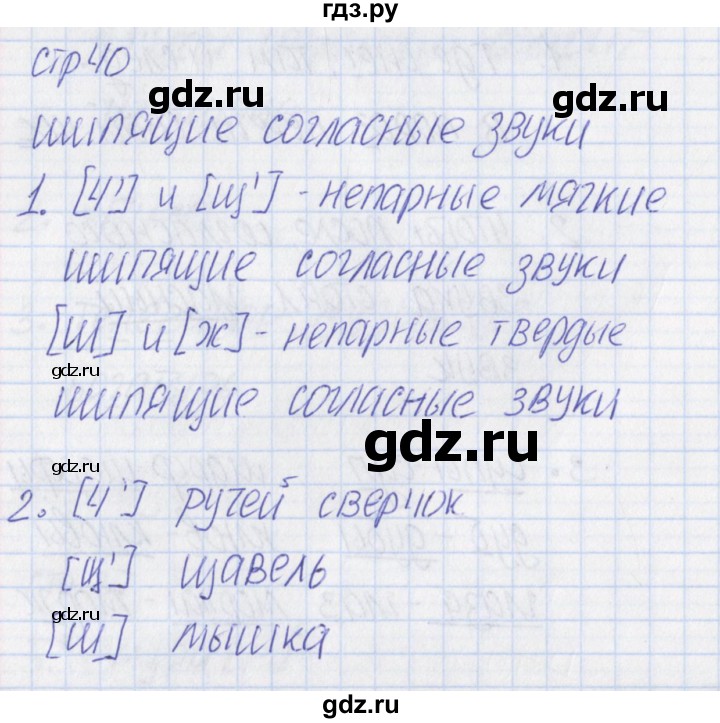 гдз.ру
стр 40
gdz.ru
gdz.ru
шипящие согласные звуки
1. [ч'] и [щ'] - непарные мягкие
шипящие согласные звуки
[ш] и [ж] - непарные твердые
gdz.ru
шипящие согласные звуки
gdz.ru
gdz.ru
2. [ч'] ручей сверчок
[щ'] щавель
gdz.ru
[ш] мышка
gdz.ru
gdz.ru